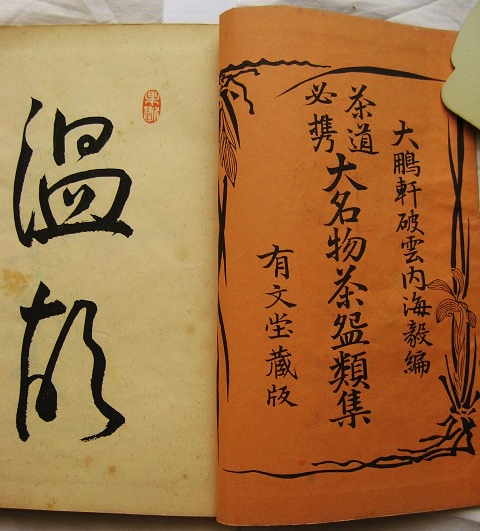 大鵬軒破雲内海毅編
茶道
必携
大名物茶盌類集
有文堂藏版
温故